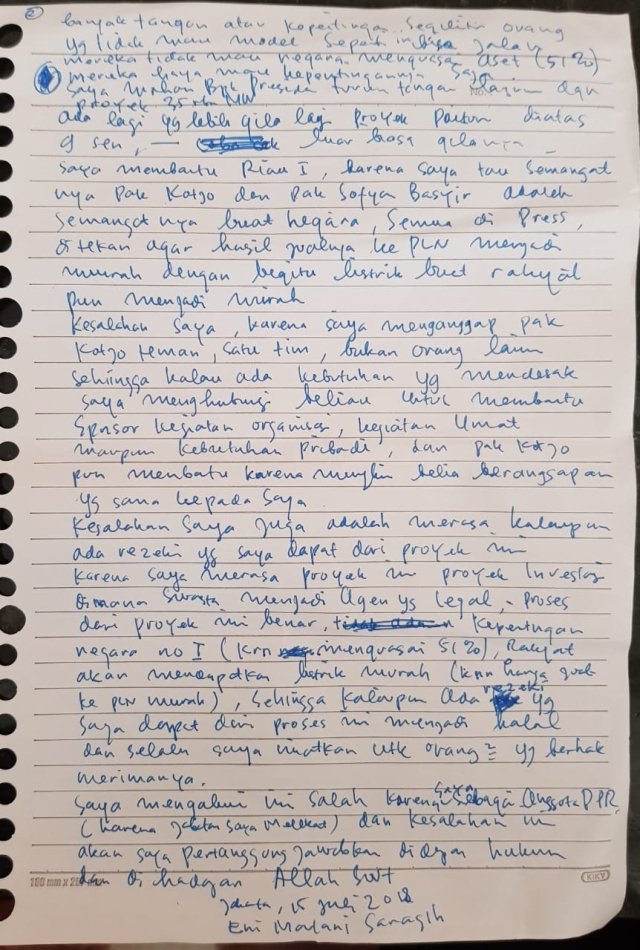 2
banyak tangan atau kepentingan. Segelintir orang
yg tidak mau model seperti ini bisa jalan
mereka tidak mau negara menguasai aset (51%)
mereka hanya mau kepentingannya saja
Saya mohon Bpk Presiden turun tangan dgn
proyek 35 ribu MW
ada lagi yg lebih gila lagi proyek Paiton diatas
9 sen, — luar biasa gilanya
Saya membantu Riau I, karena saya tau semangat
nya pak Kotjo dan pak Sofyan Basyir adalah
semangatnya buat negara, semua di press,
ditekan agar hasil jualnya ke PLN menjadi
murah dengan begitu listrik buat rakyat
pun menjadi murah
Kesalahan saya, karena saya menganggap pak
Kotjo teman, satu tim, bukan orang lain
sehingga kalau ada kebutuhan yg mendesak
saya menghubungi beliau untuk membantu
Sponsor kegiatan organisasi, kegiatan Umat
maupun kebutuhan pribadi, dan pak Kotjo
pun membatu karena mungkin belia beranggapan
yg sama kepada saya
Kesalahan saya juga adalah merasa kalaupun
ada rezeki yg saya dapat dari proyek ini
karena saya merasa proyek ini proyek Investasi
dimana Swasta menjadi Agen yg legal, - proses
dari proyek ini benar, kepentingan
negara no I (krn menguasai 51%), Rakyat
akan mendapatkan listrik murah (krn harga jual
ke PLN murah), sehingga kalaupun ada rezeki yg
saya dapat dari proses ini menjadi halal
dan selalu saya niatkan utk orang² yg berhak
merimanya.
Saya mengakui ini salah karena saya sebagai Anggota DPR
(karena jabatan saya melekat) dan kesalahan ini
akan saya pertanggung jawabkan didepan hukum
dan di hadapan Allah SWT
Jakarta, 15 Juli 2018
Eni Maulani Saragih
KIKY